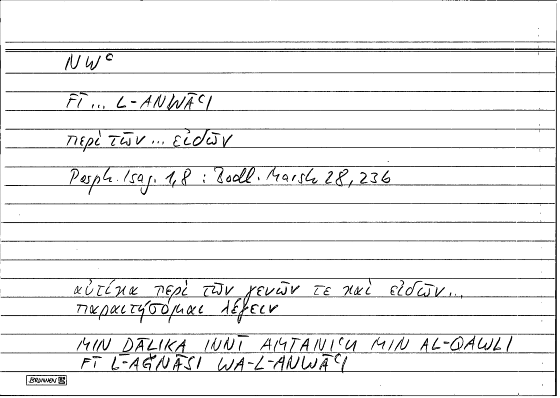 NWᶜ
FĪ ... L-ANWĀᶜI
περὶ τῶν ... εἰδῶν
Porph. Isag. 1,8 : Bodl. Marsh 28, 236
αὐτίκα περὶ τῶν γενῶν τε καὶ εἰδῶν ...
παραιτήσομαι λέγειν
MIN ḎĀLIKA INNĪ AMTANIᶜU MIN AL-QAWLI
FĪ L-AǦNĀSI WA-L-ANWĀᶜI
BRUNNEN